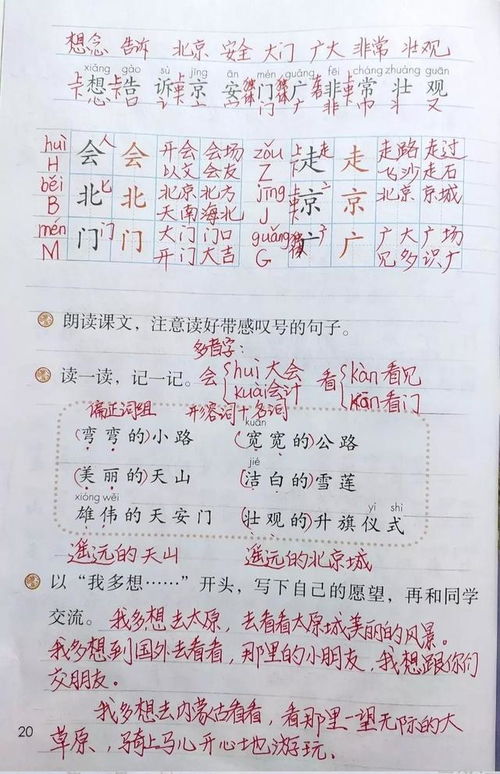 想念 告诉 北京 安全 大门 广大 非常 壮观
xiǎng gào sù jīng ān mén guǎng fēi cháng zhuàng guān
想 告 诉 京 安 门 广 非 常 壮 观
huì 会 会 开会 会场 zǒu 走 走 走路 走过
H 以文会友 Z 飞沙走石
běi 北 北 北京 北方 jīng 京 京 北京 京城
B 天南海北 J
mén 门 门 大门 门口 guǎng 广 广 广大 广场
M 开门大吉 G 见多识广
朗读课文，注意读好带感叹号的句子。
多音字：
读一读，记一记。会 huì 大会 kuài 会计 看 kàn 看见 kān 看门
偏正词组 形容词+名词
kuān
(弯弯的)小路 (宽宽的)公路
jié
(美丽的)天山 (洁白的)雪莲
xióng wěi yí shì
雄伟的天安门 (壮观的)升旗仪式
遥远的天山 遥远的北京城
以“我多想……”开头，写下自己的愿望，再和同学
交流。我多想去太原，去看看太原城美丽的风景。
我多想到国外去看看，那里的小朋友，我想跟你们
交朋友。
我多想去内蒙古看看，看那里一望无际的大
20
草原，骑上马儿开心地游玩。